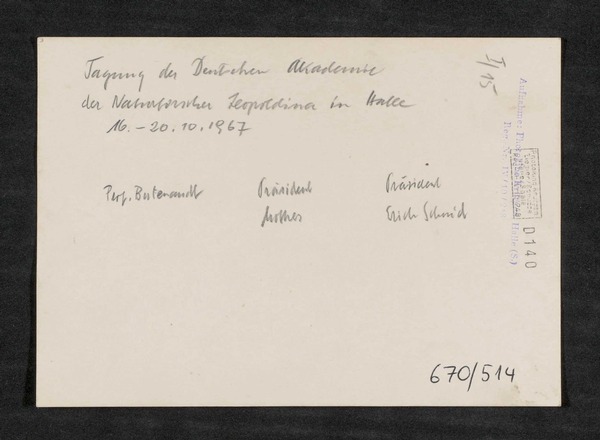 Tagung der Deutschen Akademie
der Naturforscher Leopoldina in Halle
16. – 20.10.1967
I/15
Prof. Butenandt Präsident Präsident
Mothes Erich Schmid
D 140
670/514